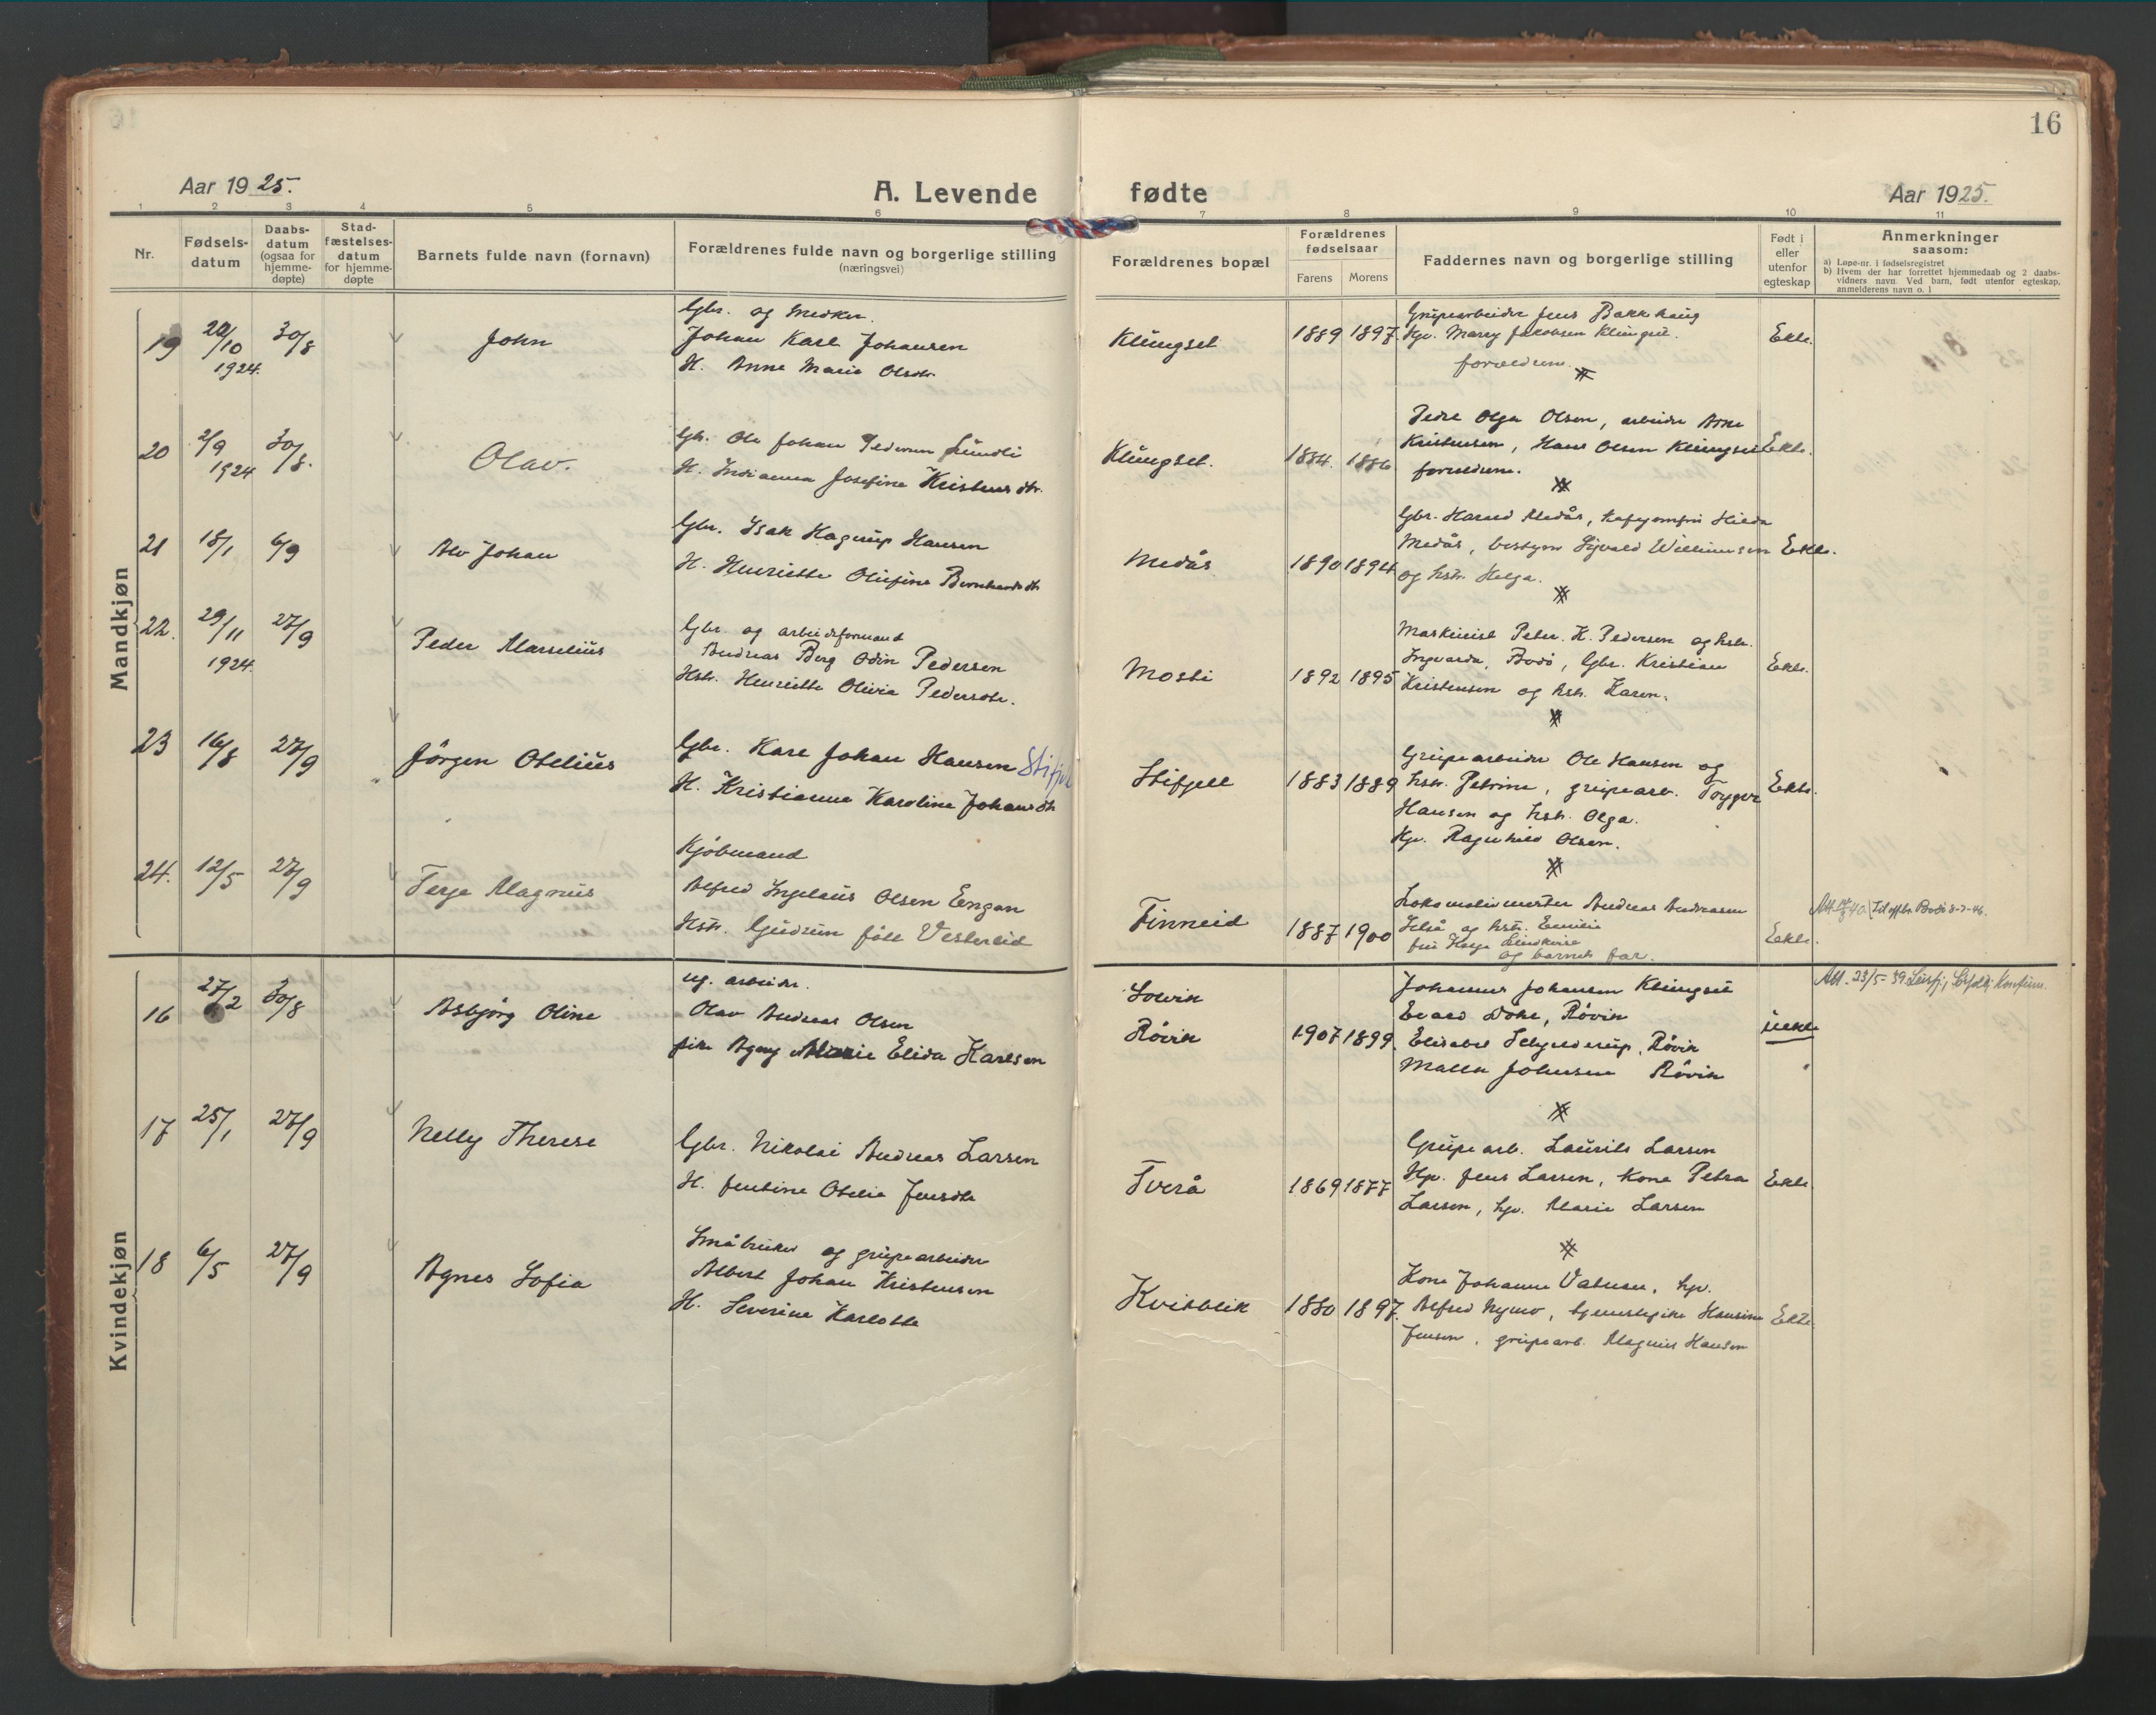 16
Aar 1925.
A. Levende fødte
Aar 1925.
1 2 3 4 5 6 7 8 9 10 11
Nr.
Fødsels-
datum
Daabs-
datum
(ogsaa for
hjemme-
døpte)
Stad-
fæstelses-
datum
for hjemme-
døpte
Barnets fulde navn (fornavn)
Forældrenes fulde navn og borgerlige stilling
(næringsvei)
Forældrenes bopæl
Forældrenes
fødselsaar
Farens Morens
Faddernes navn og borgerlige stilling
Født i
eller
utenfor
egteskap
Anmerkninger
saasom:
a) Løpe-nr. i fødselsregistret
b) Hvem der har forrettet hjemmedaab og 2 daabs-
vidners navn. Ved barn, født utenfor egteskap,
anmelderens navn o. l
Mandkjøn
19
20/10
1924.
30/8
John
Gbr. og
Johan Karl Johansen
H. Anne Marie Olsdtr.
Klungset
1889 1897.
Grubearbeider Jens Bakkhaug
Hp. Marry Jakobsen Klungset.
forældrene.
Ekte.
20
2/9
1924
30/8.
Olav.
Gbr. Ole Johan Pedersen Lundli
H. Indianna Josefine Kristensdtr.
Klungset.
1884. 1886
Pedre Olga Olsen, arbeider Arne
Kristensen, Hans Olsen Klungset
forældrene.
Ekte.
21
18/1
6/9
Alv Johan
Gbr. Isak Hagerup Hansen
H. Henriette Olufine Bernhardsdtr
Medås
1890 1894
Gbr. Harald Medås, Hilda
Medås, bestyrer Sigvald Willumsen
og hstr. Helga.
Ekte.
22.
29/11
1924.
27/9
Peder Marselius
Gbr. og arbeidsformand
Andreas Berg Odin Pedersen
Hstr. Henriette Olivia Pedersdtr.
Mosti
1892 1895
Maskinist Peter. K. Pedersen og hstr.
Ingvarda, Bodø, Gbr. Kristian
Kristensen og hstr. Karen.
Ekte.
23
16/8
27/9
Jörgen Otelius
Gbr. Karl Johan Hansen Stifjel
H. Kristianna Karoline Johansdtr
Stifjell
1883 1889
Grubearbeider Ole Hansen og
hstr. Petrine, grubearb. Trygve
Hansen og hstr. Olga.
Hp. Ragnhild Olsen.
Ekte.
24.
12/5
27/9
Terje Magnus
Kjöbmand
Alfred Ingelaus Olsen Engan
Hstr. Gudrun föde Vestereid
Finneid
1887 1900
Lokomotivmester Andreas Andreasen
og hstr. Emilie
fru Helga Lindkvist
og barnets far.
Ekte.
Til offbr. Bodö 8-7-46.
Kvindekjøn
16
27/2
30/8
Asbjörg Oline
ug. arbeider.
Olav Andreas Olsen
pike Agny Marie Elida Karlsen
Sovik
Røvik
1907 1899.
Johannes Johansen Klungset
Evald Dohl, Røvik
Elisabet Schjelderup, Røvik
Malla Johnsen Røvik
uekte
Att. 23/5-39
17
25/1
27/9
Nelly Therese
Gbr. Nikolai Andreas Larsen
H. Jentine Otelie Jensdtr
Tverå
1869 1877
Grubearb. Laurits Larsen
Hp. Jens Larsen, Kone Petra
Larsen, hp. Marie Larsen
Ekte
18
6/5
27/9
Agnes Sofia
Småbruker og grubearbeider
Albert Johan Kristensen
H. Severine Karlotte
Kvitblik
1880 1897.
Kone Johanne Vatnsen, hp.
Alfred Nymo, tjenestepike Hansine
Jensen, grubearb. Magnus Hansen
Ekte.